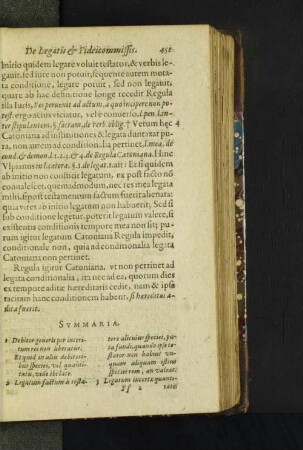 De Legatis & Fideicommissis. 451
Initio quidem legare voluit testator, & verbis le-
gauit, sed iure non potuit, sequente autem muta-
ta conditione, legare potuit, sed non legauit,
quare ab hac definitione longe recedit Regula
illa Iuris,
test: ergo actus vitiatur, vel è conuerso.
Vetum hęc 4
Catoniana ad institutiones & legata duntaxat pu-
ra, non autem ad conditionalia pertinet,
de Regula Catoniana. Hinc
Vlpianus
ab initio non constitit legatum, ex post facto nõ
conualescet, quemadmodum, nec res mea legata
mihi, si post testamentum factum fuerit alienata:
quia vires ab initio legatum non habuit; Sed si
sub conditione legetur, poterit legatum valere, si
existentis conditionis tempore mea non sit; pu-
rum igitur legatum Catoniana Regula impedit,
conditionale non, quia ad conditionalia legata
Catoniana non pertinet.
Regula igitur Catoniana, vt non pertinet ad
legata conditionalia, ita nec ad ea, quorum dies
ex tempore aditæ hereditatis cedit, nam & ipsa
tacitam hanc conditionem habent, si hereditas a-
dita fuerit.
SVMMARIA.
1 Debitor generis per interi-
tum rei non liberatur.
Et quid si talis debitori-
bus species, vel quanti-
tatis, vide ibi late.
2 Legatum factum à testa-
tore alicuius speciei, pu-
ta fundi, quando ipse te-
stator non habuit vn-
quam aliquam istius
speciei rem, an valeat.
3 Legatum incertæ quanti-
Ff 2 tatis